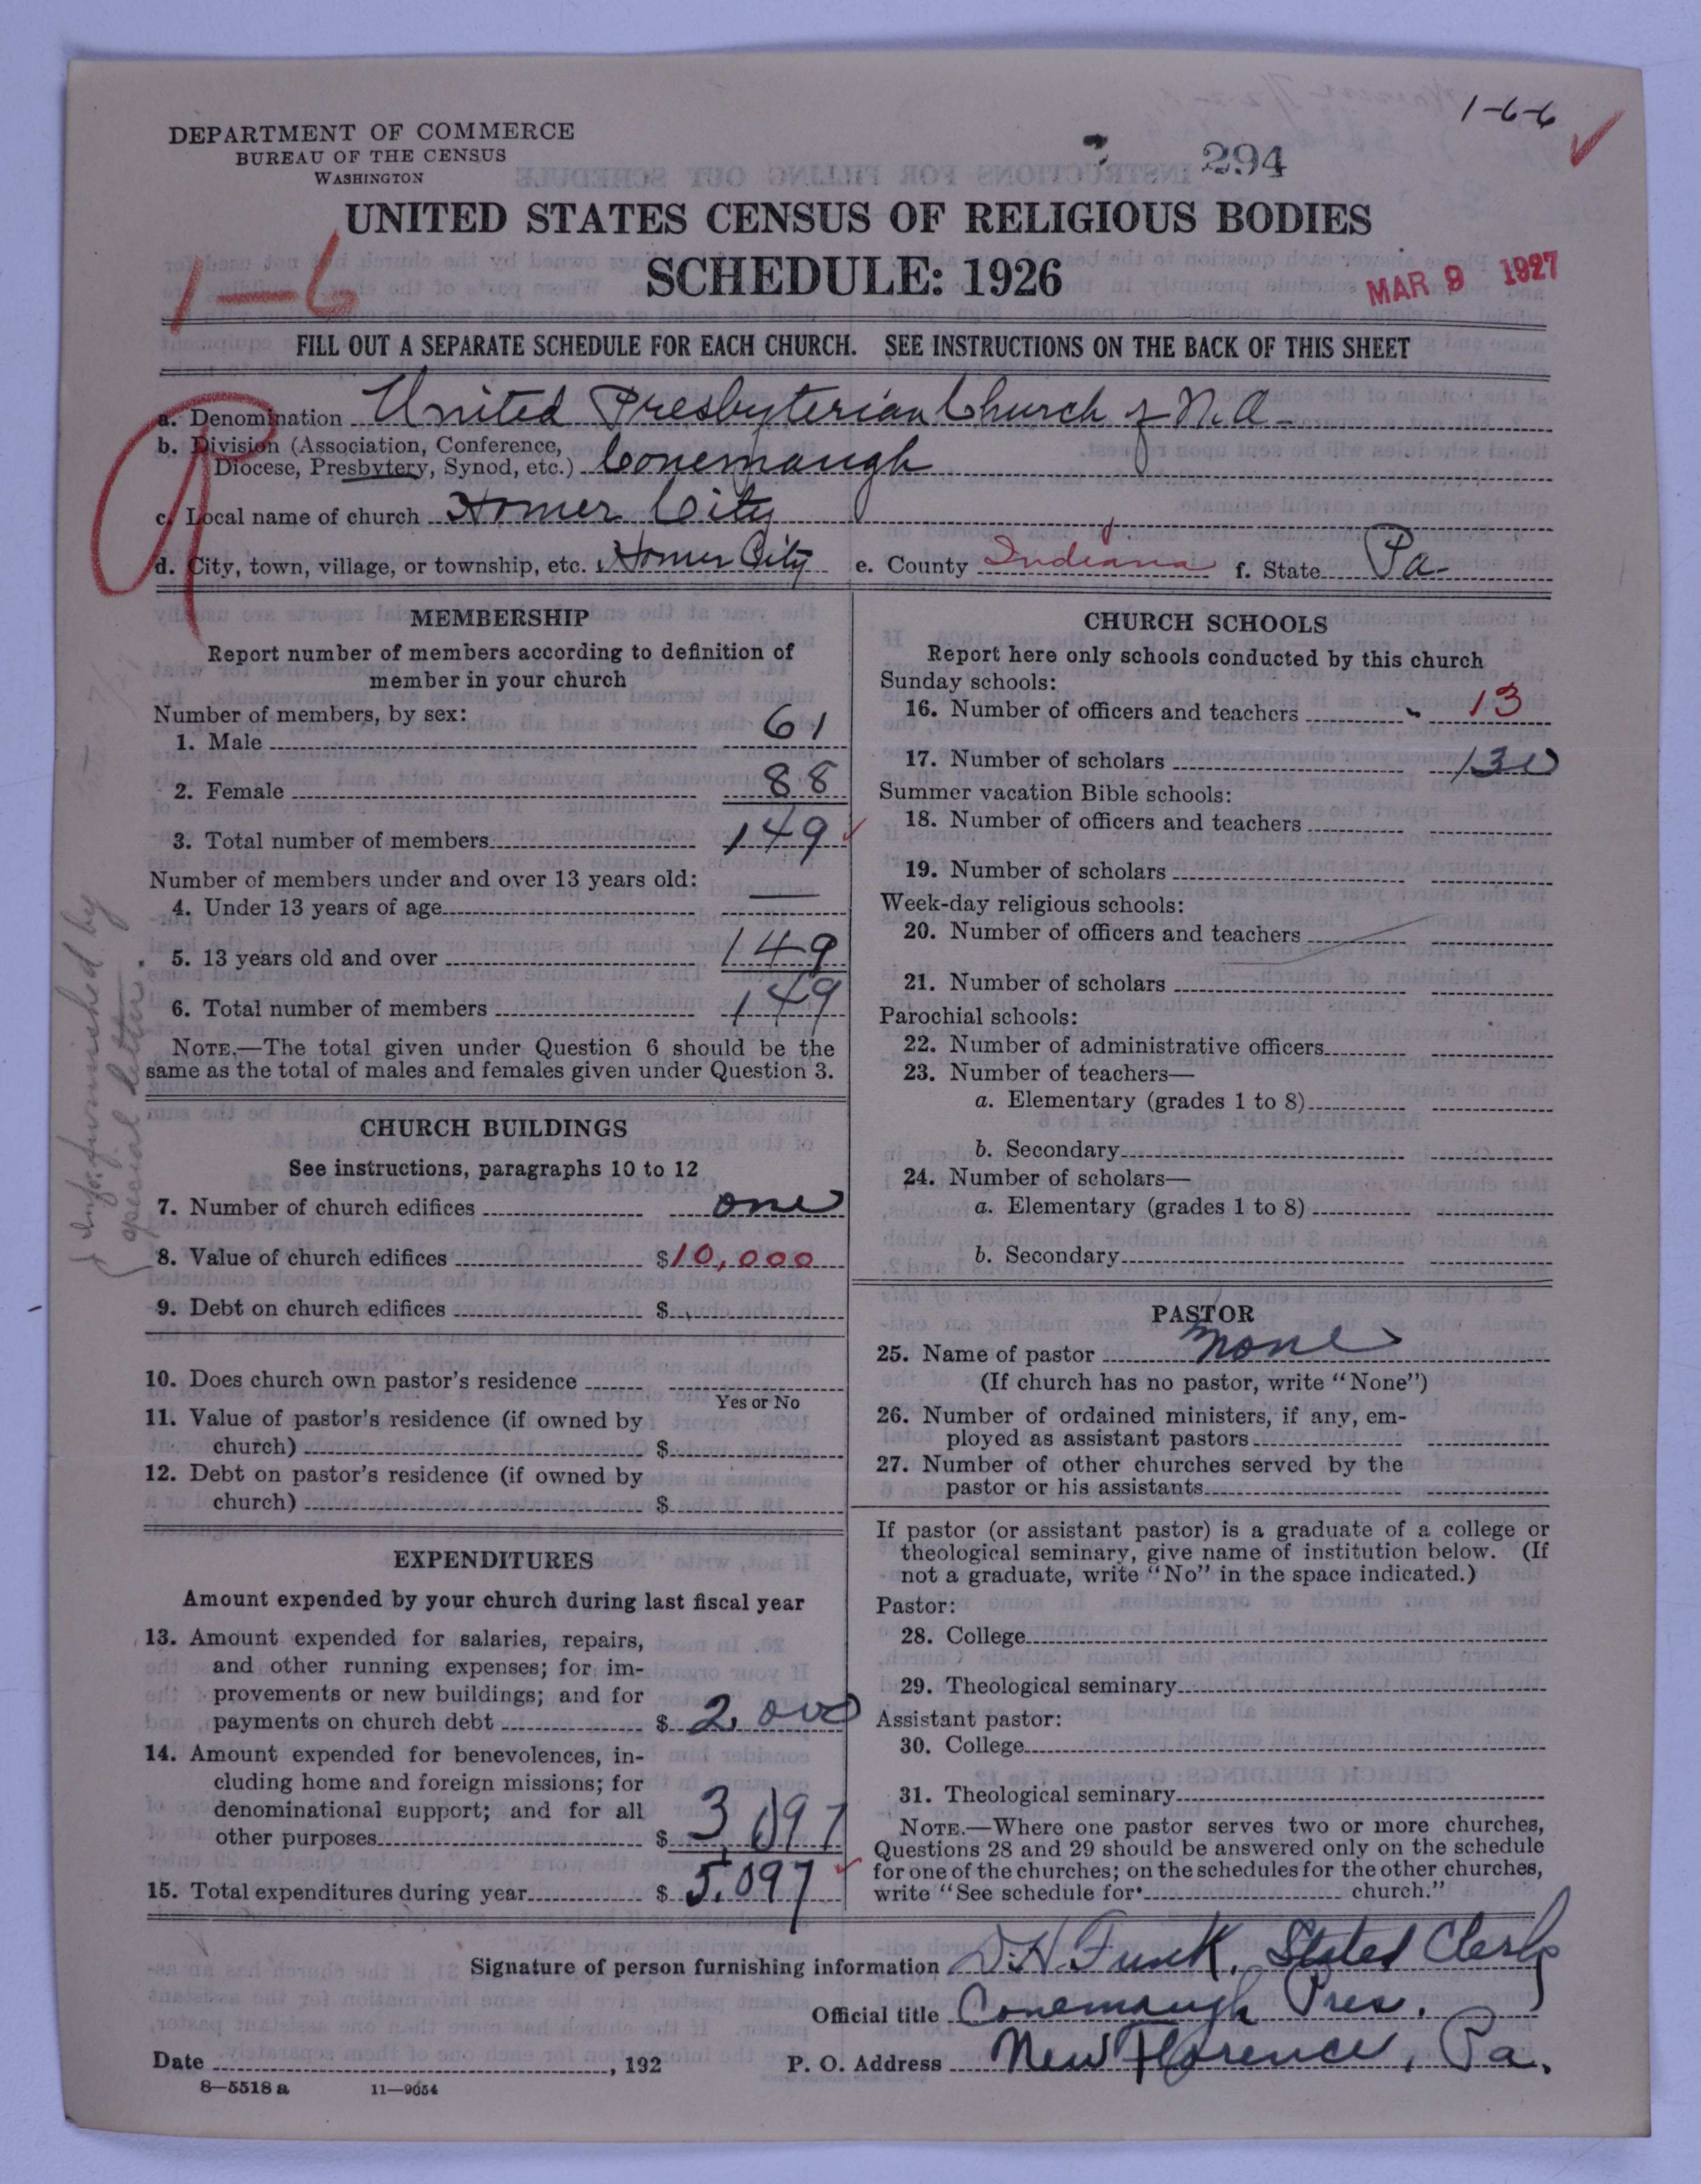 1-6-6
DEPARTMENT OF COMMERCE
BUREAU OF THE CENSUS
WASHINGTON
294
UNITED STATES CENSUS OF RELIGIOUS BODIES
SCHEDULE: 1926
1-6
MAR 9 1927
FILL OUT A SEPARATE SCHEDULE FOR EACH CHURCH. SEE INSTRUCTIONS ON THE BACK OF THIS SHEET
a. Denomination United Presbyterian Church of N.A.
b. Division (Association, Conference,
Diocese, Presbytery, Synod, etc.) Conemaugh
c. Local name of church Homer City
d. City, town, village, or township, etc. Homer City e. County Indiana f. State Pa.
MEMBERSHIP
Report number of members according to definition of
member in your church
Number of members, by sex:
1. Male 61
2. Female 88
3. Total number of members 149
Number of members under and over 13 years old:
4. Under 13 years of age —
5. 13 years old and over 149
6. Total number of members 149
NOTE.—The total given under Question 6 should be the
same as the total of males and females given under Question 3.
CHURCH BUILDINGS
See instructions, paragraphs 10 to 12
7. Number of church edifices one
8. Value of church edifices $10,000
9. Debt on church edifices $
10. Does church own pastor's residence
Yes or No
11. Value of pastor's residence (if owned by
church) $
12. Debt on pastor's residence (if owned by
church) $
EXPENDITURES
Amount expended by your church during last fiscal year
13. Amount expended for salaries, repairs,
and other running expenses; for im-
provements or new buildings; and for
payments on church debt $ 2,000
14. Amount expended for benevolences, in-
cluding home and foreign missions; for
denominational support; and for all
other purposes $ 3,097
15. Total expenditures during year $ 5,097
Info. furnished by
special letter.
CHURCH SCHOOLS
Report here only schools conducted by this church
Sunday schools:
16. Number of officers and teachers 13
17. Number of scholars 130
Summer vacation Bible schools:
18. Number of officers and teachers
19. Number of scholars
Week-day religious schools:
20. Number of officers and teachers
21. Number of scholars
Parochial schools:
22. Number of administrative officers
23. Number of teachers—
a. Elementary (grades 1 to 8)
b. Secondary
24. Number of scholars—
a. Elementary (grades 1 to 8)
b. Secondary
PASTOR
25. Name of pastor none
(If church has no pastor, write "None")
26. Number of ordained ministers, if any, em-
ployed as assistant pastors
27. Number of other churches served by the
pastor or his assistants
If pastor (or assistant pastor) is a graduate of a college or
theological seminary, give name of institution below. (If
not a graduate, write "No" in the space indicated.)
Pastor:
28. College
29. Theological seminary
Assistant pastor:
30. College
31. Theological seminary
NOTE.—Where one pastor serves two or more churches,
Questions 28 and 29 should be answered only on the schedule
for one of the churches; on the schedules for the other churches,
write "See schedule for church."
Signature of person furnishing information D.H. Funk, Stated Clerk
Official title Conemaugh Pres.
Date , 192 P. O. Address New Florence, Pa.
8-5518 a 11-9054